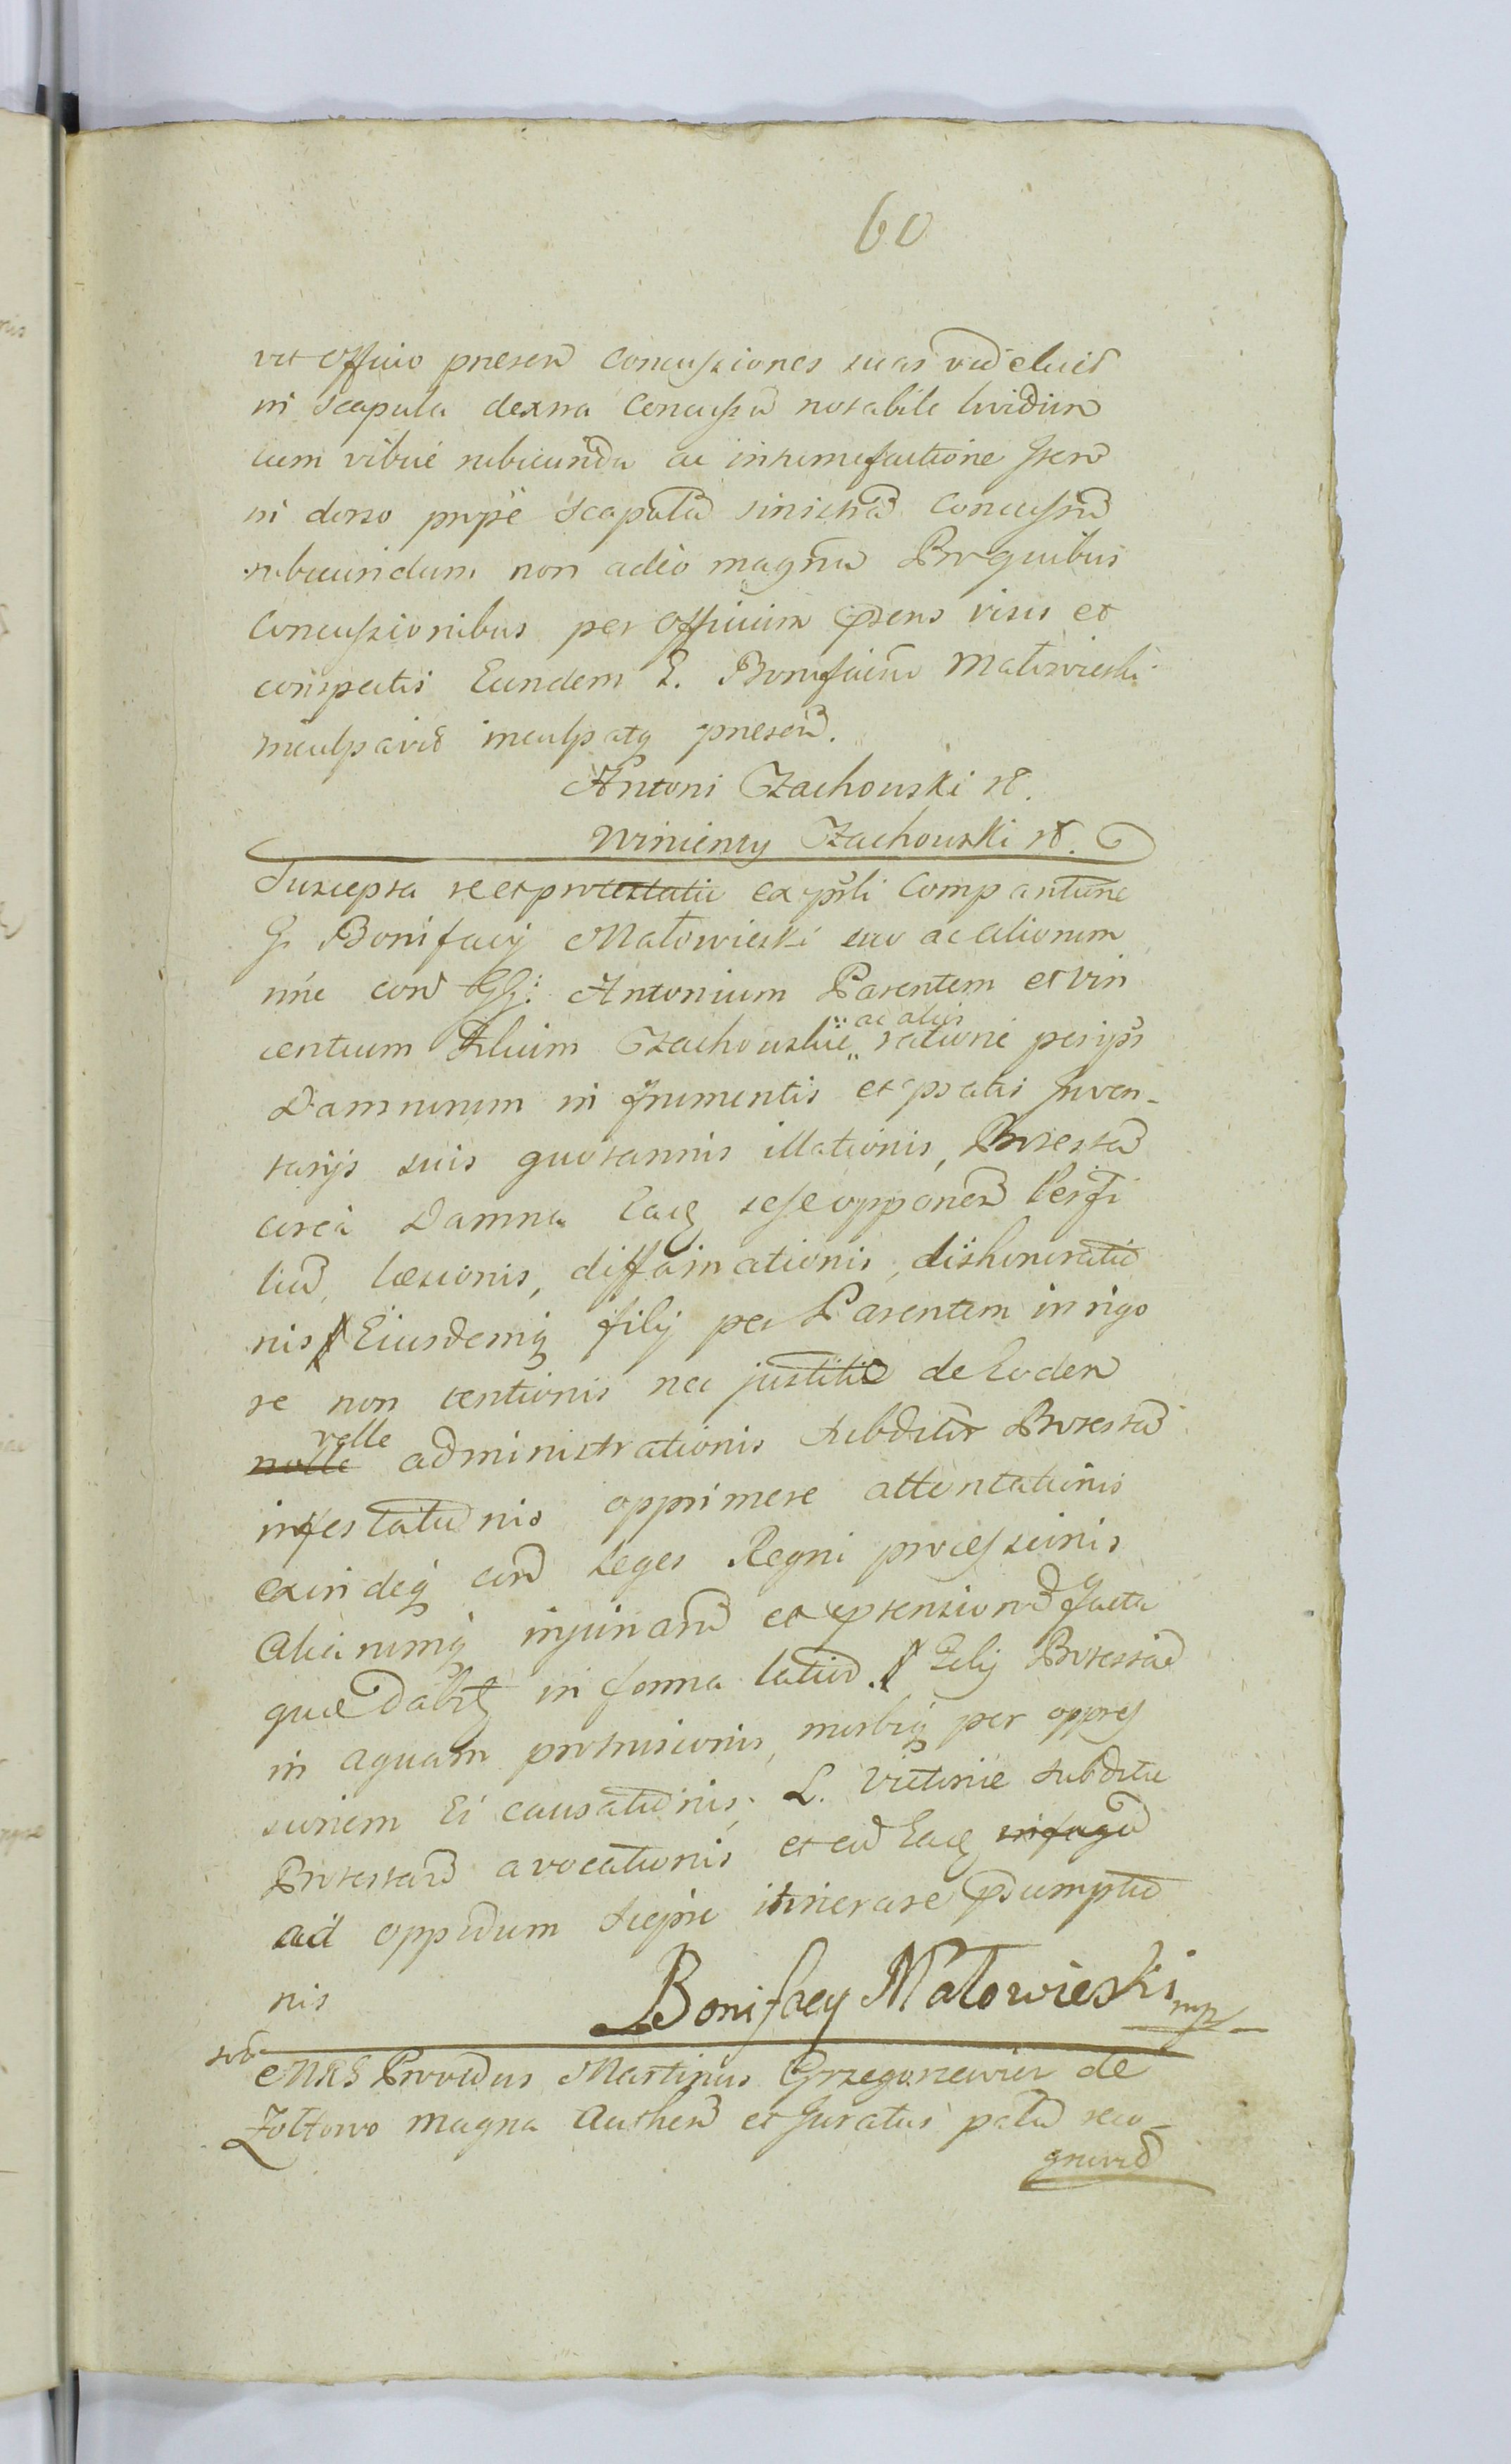 60
vit Officio presen concussiones suas videlicet
in scapula dextra concussu notabile lividum
cum vibice rubicunda ac intumefactione Item
in dorso prope scapula sinistra concussu
rubicundum non adeo magnu Pro quibus
Concussionibus per Officium pdens visis et
conspectis Eundem G. Bonifaciu Malowieski
inculpavit inculpatq presen.
Antoni Czachowski
Winienty Czachowski
Suscepta reetprotestatio ex psli Comparitione
G. Bonifacij Małowieski suo ac aliorum
nne con GG: Antonium Parentem et Vin
centium Filium Czachowskie ac alijs ratione per ips
Damnorum in frumentis et pratis Inven-
tarijs suis quotannis illationis, Protestan
circa Damna Eaq sese opponen Per fi
liu, læsionis, diffamationis, dishonoratio
nis Eiusdemq filij per Parentem in rigo
re non tentionis nec justitia de Eodem
nolle velle administrationis Subditor Protestan
infestationis opprimere attentationis
exindeq con Leges Regni processionis
Aliarumq injuriaru et ptensionu facta
quæ dabit in forma latior. Filij Protestan
in aquam protrusionis, morbiq per oppres
sionem Ei causationis. L. Victoriæ Subditæ
Protestan avocationis et cu Eaq infuga
ad oppidum itinerare psumptio
nis
Bonifacy Małowieski mp
MRS Providus Martinus Grzegorzewicz de
Zołtowo Magna Authen et Juratus palu reco-
gnovit